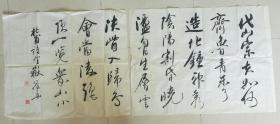 岱宗夫如何
齊魯青未了
造化鍾神秀
陰陽割昏曉
盪胸生層雲
決眥入歸鳥
會當凌絕
頂一覽衆山小
杜甫詩望嶽